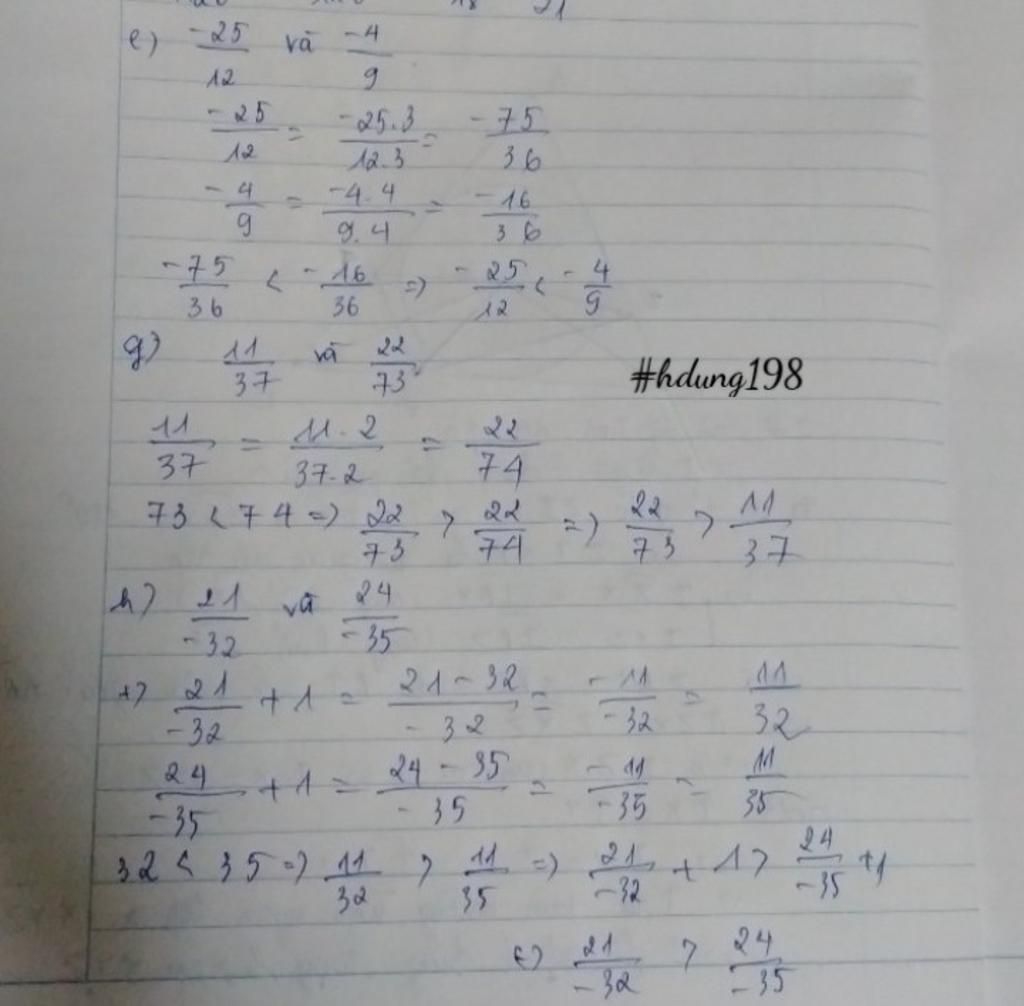 e) -25/12 và -4/9
-25/12 = -25.3/12.3 = -75/36
-4/9 = -4.4/9.4 = -16/36
-75/36 < -16/36 => -25/12 < -4/9
g) 11/37 và 22/73
#hdung198
11/37 = 11.2/37.2 = 22/74
73 < 74 => 22/73 > 22/74 => 22/73 > 11/37
h) 21/-32 và 24/-35
+) 21/-32 + 1 = 21-32/-32 = -11/-32 = 11/32
24/-35 + 1 = 24-35/-35 = -11/-35 = 11/35
32 < 35 => 11/32 > 11/35 => 21/-32 + 1 > 24/-35 + 1
21/-32 > 24/-35